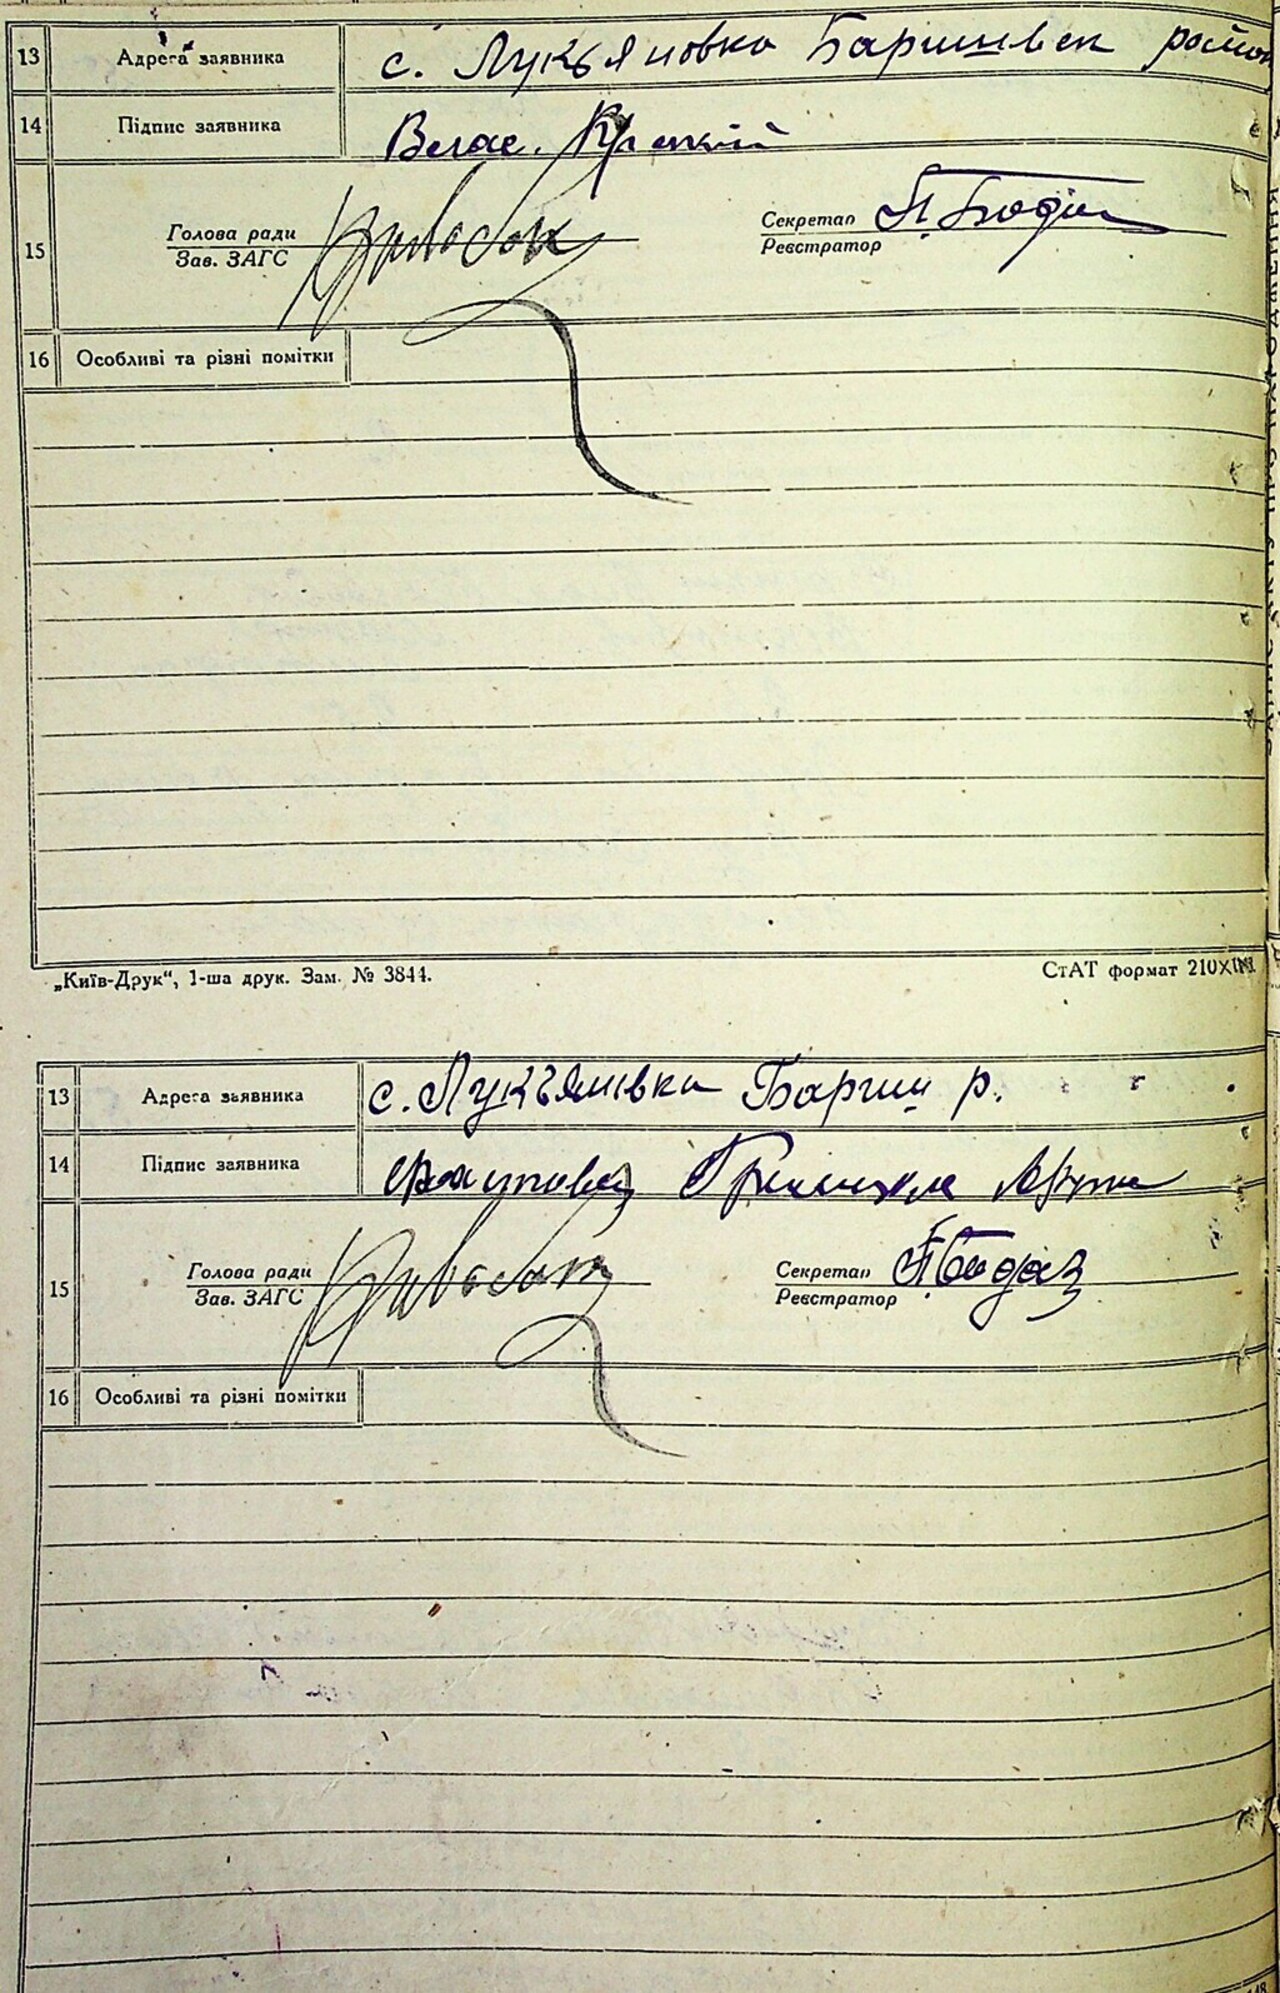 13 Адреса заявника с. Лукьяновка Баришевск район
14 Підпис заявника
15 Голова ради Кривобок Секретар П. Бодін
Зав. ЗАГС Реєстратор
16 Особливі та різні помітки
„Київ-Друк“, 1-ша друк. Зам. № 3844. СтАТ формат 210Х
13 Адреса заявника с. Лукъянівка Бариш р.
14 Підпис заявника
15 Голова ради Кривобок Секретар
Зав. ЗАГС Реєстратор
16 Особливі та різні помітки